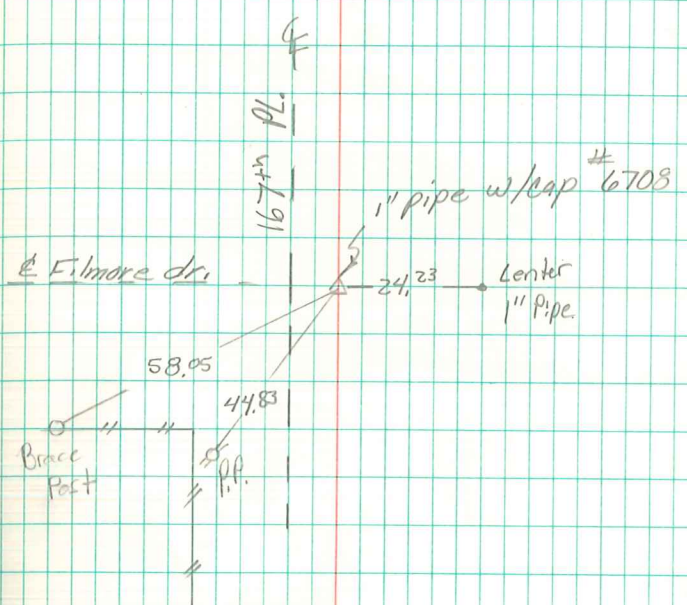 ℄
167th PL.
1" pipe w/cap #6708
℄ Filmore dr.
24.23
Center
1" Pipe
58.05
44.83
Brace
Post
P.P.